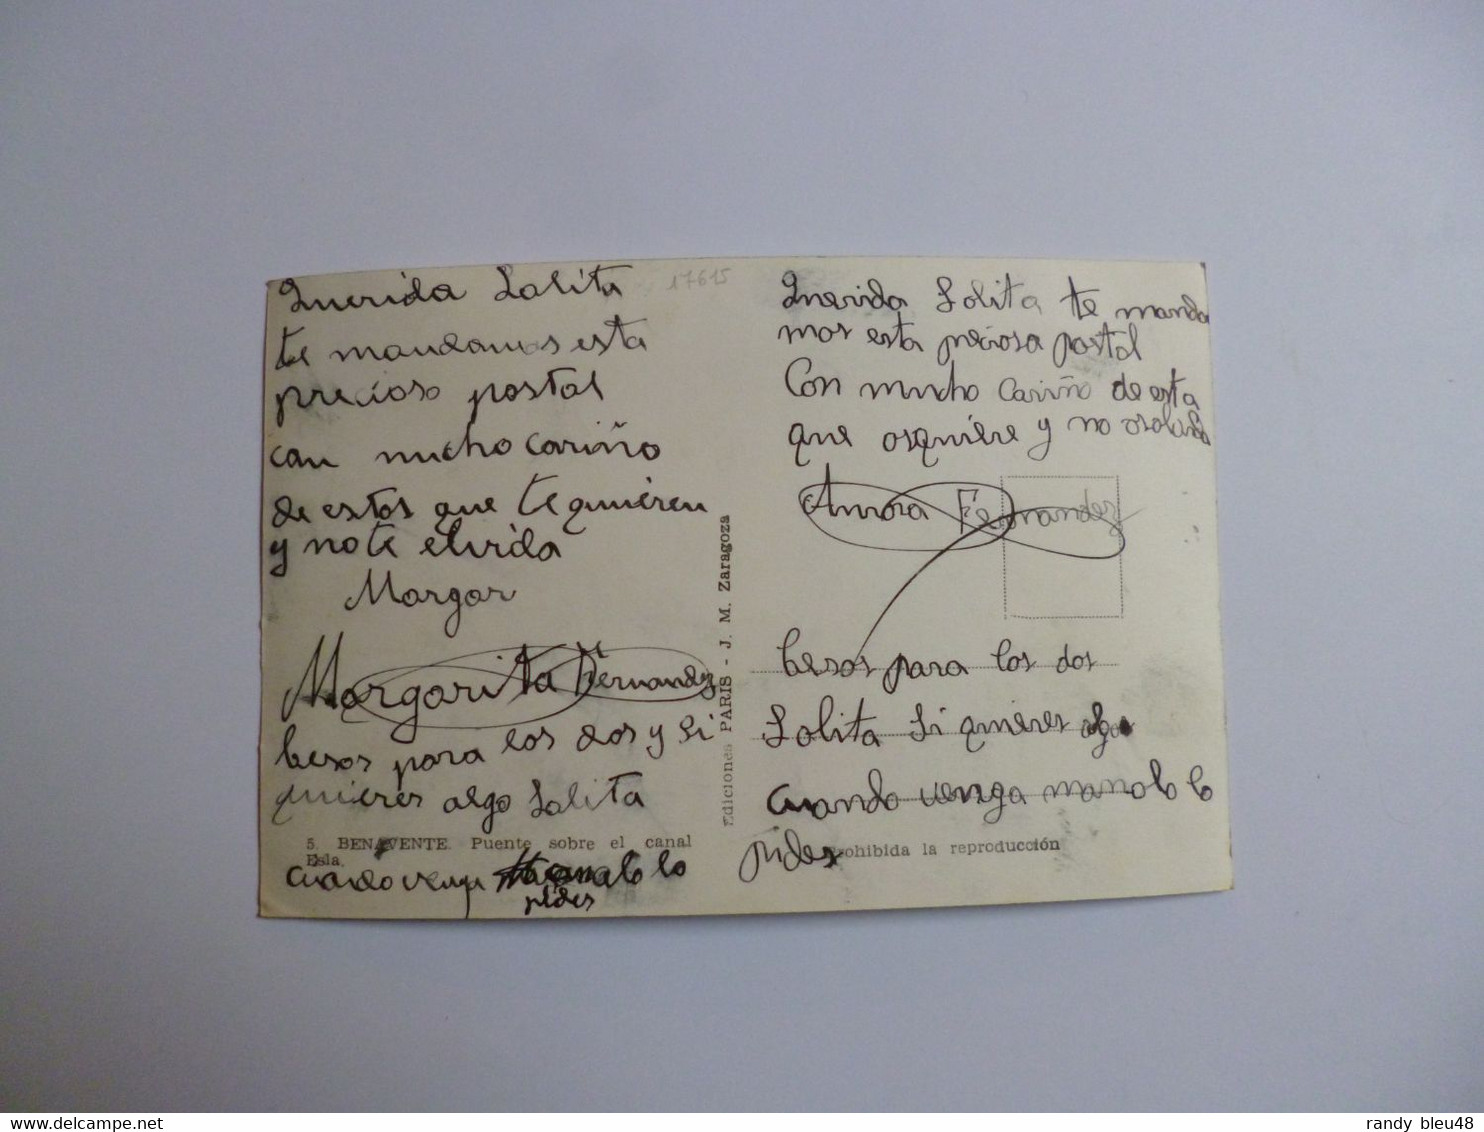 17615
Querida Lolita
te mandamos esta
precioso postal
con mucho cariño
de estos que te quieren
y no te elvida
Margar
Margarita Fernandez
besos para los dos y si
quieres algo Lolita
5. BENAVENTE. Puente sobre el canal
Esla.
cuando venga Manolo lo
pides
Ediciones PARIS - J. M. Zaragoza
Querida Lolita te manda
mos esta preciosa postal
Con mucho cariño de esta
que osquiere y no osolvida
Aurora Fernandez
besos para los dos
Lolita si quieres algo
cuando venga manolo lo
pides
Prohibida la reproducción
delcampe.net
randy_bleu48